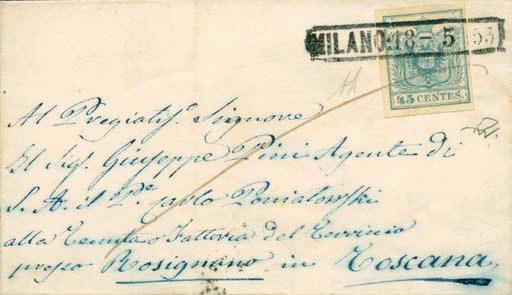 MILANO 18-5 53
45 CENTES.
Al Pregiatis. Signore
Il Sig. Giuseppe Pini Agente di
S. A. il P.e Carlo Poniatowski
alla Tenuta o Fattoria del Terriccio
presso Rosignano in Toscana